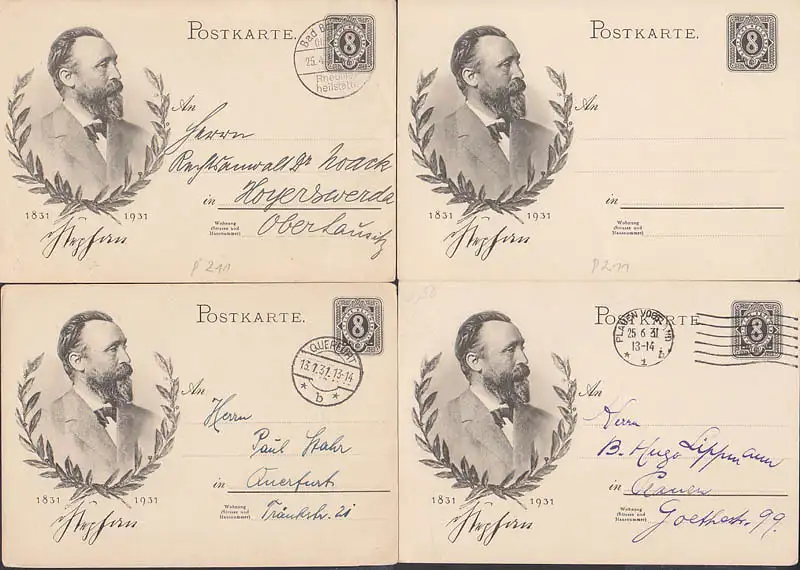 POSTKARTE.
8
Bad B
25.4
Rheuma
heilstätte
An
Herrn
Rechtsanwalt Dr Noack
in Hoyerswerda
Wohnung
(Strasse und
Hausnummer)
Oberlausitz
1831 1931
Stephan
P 211
POSTKARTE.
8
An
in
Wohnung
(Strasse und
Hausnummer)
1831 1931
Stephan
P 211
POSTKARTE.
8
QUERFURT
13-14
b
An
Herrn
Paul Stahr
in Querfurt
Wohnung
(Strasse und
Hausnummer)
Tränkstr. 21
1831 1931
Stephan
POSTKARTE
8
PLAUEN
25.6.31
13-14
An
Herrn
B. Hugo Lippmann
in Plauen
Wohnung
(Strasse und
Hausnummer)
Goethestr. 99.
1831 1931
Stephan